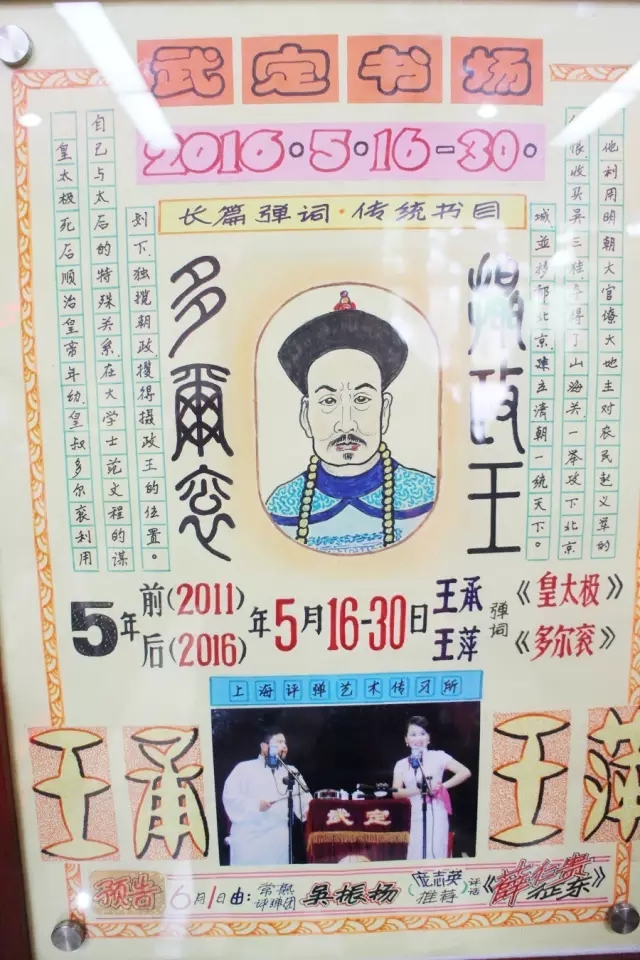 武定书场
2016·5·16-30·
长篇弹词·传统书目
皇太极死后顺治皇帝年幼,皇叔多尔衮利用
自己与太后的特殊关系在大学士范文程的谋
划下,独揽朝政,攫得摄政王的位置。
他利用明朝大官僚大地主对农民起义军的
恨,收买吴三桂夺得了山海关一举攻下北京
城並移都北京,建立清朝一统天下。
攝政王
多爾衮
5年前(2011)后(2016)年5月16-30日王承王萍弹词《皇太极》《多尔衮》
上海评弹艺术传习所
王承
王萍
武定
预告 6月1日由:常熟评弹团 吴振扬(庞志英推荐)评话《薛仁贵征东》